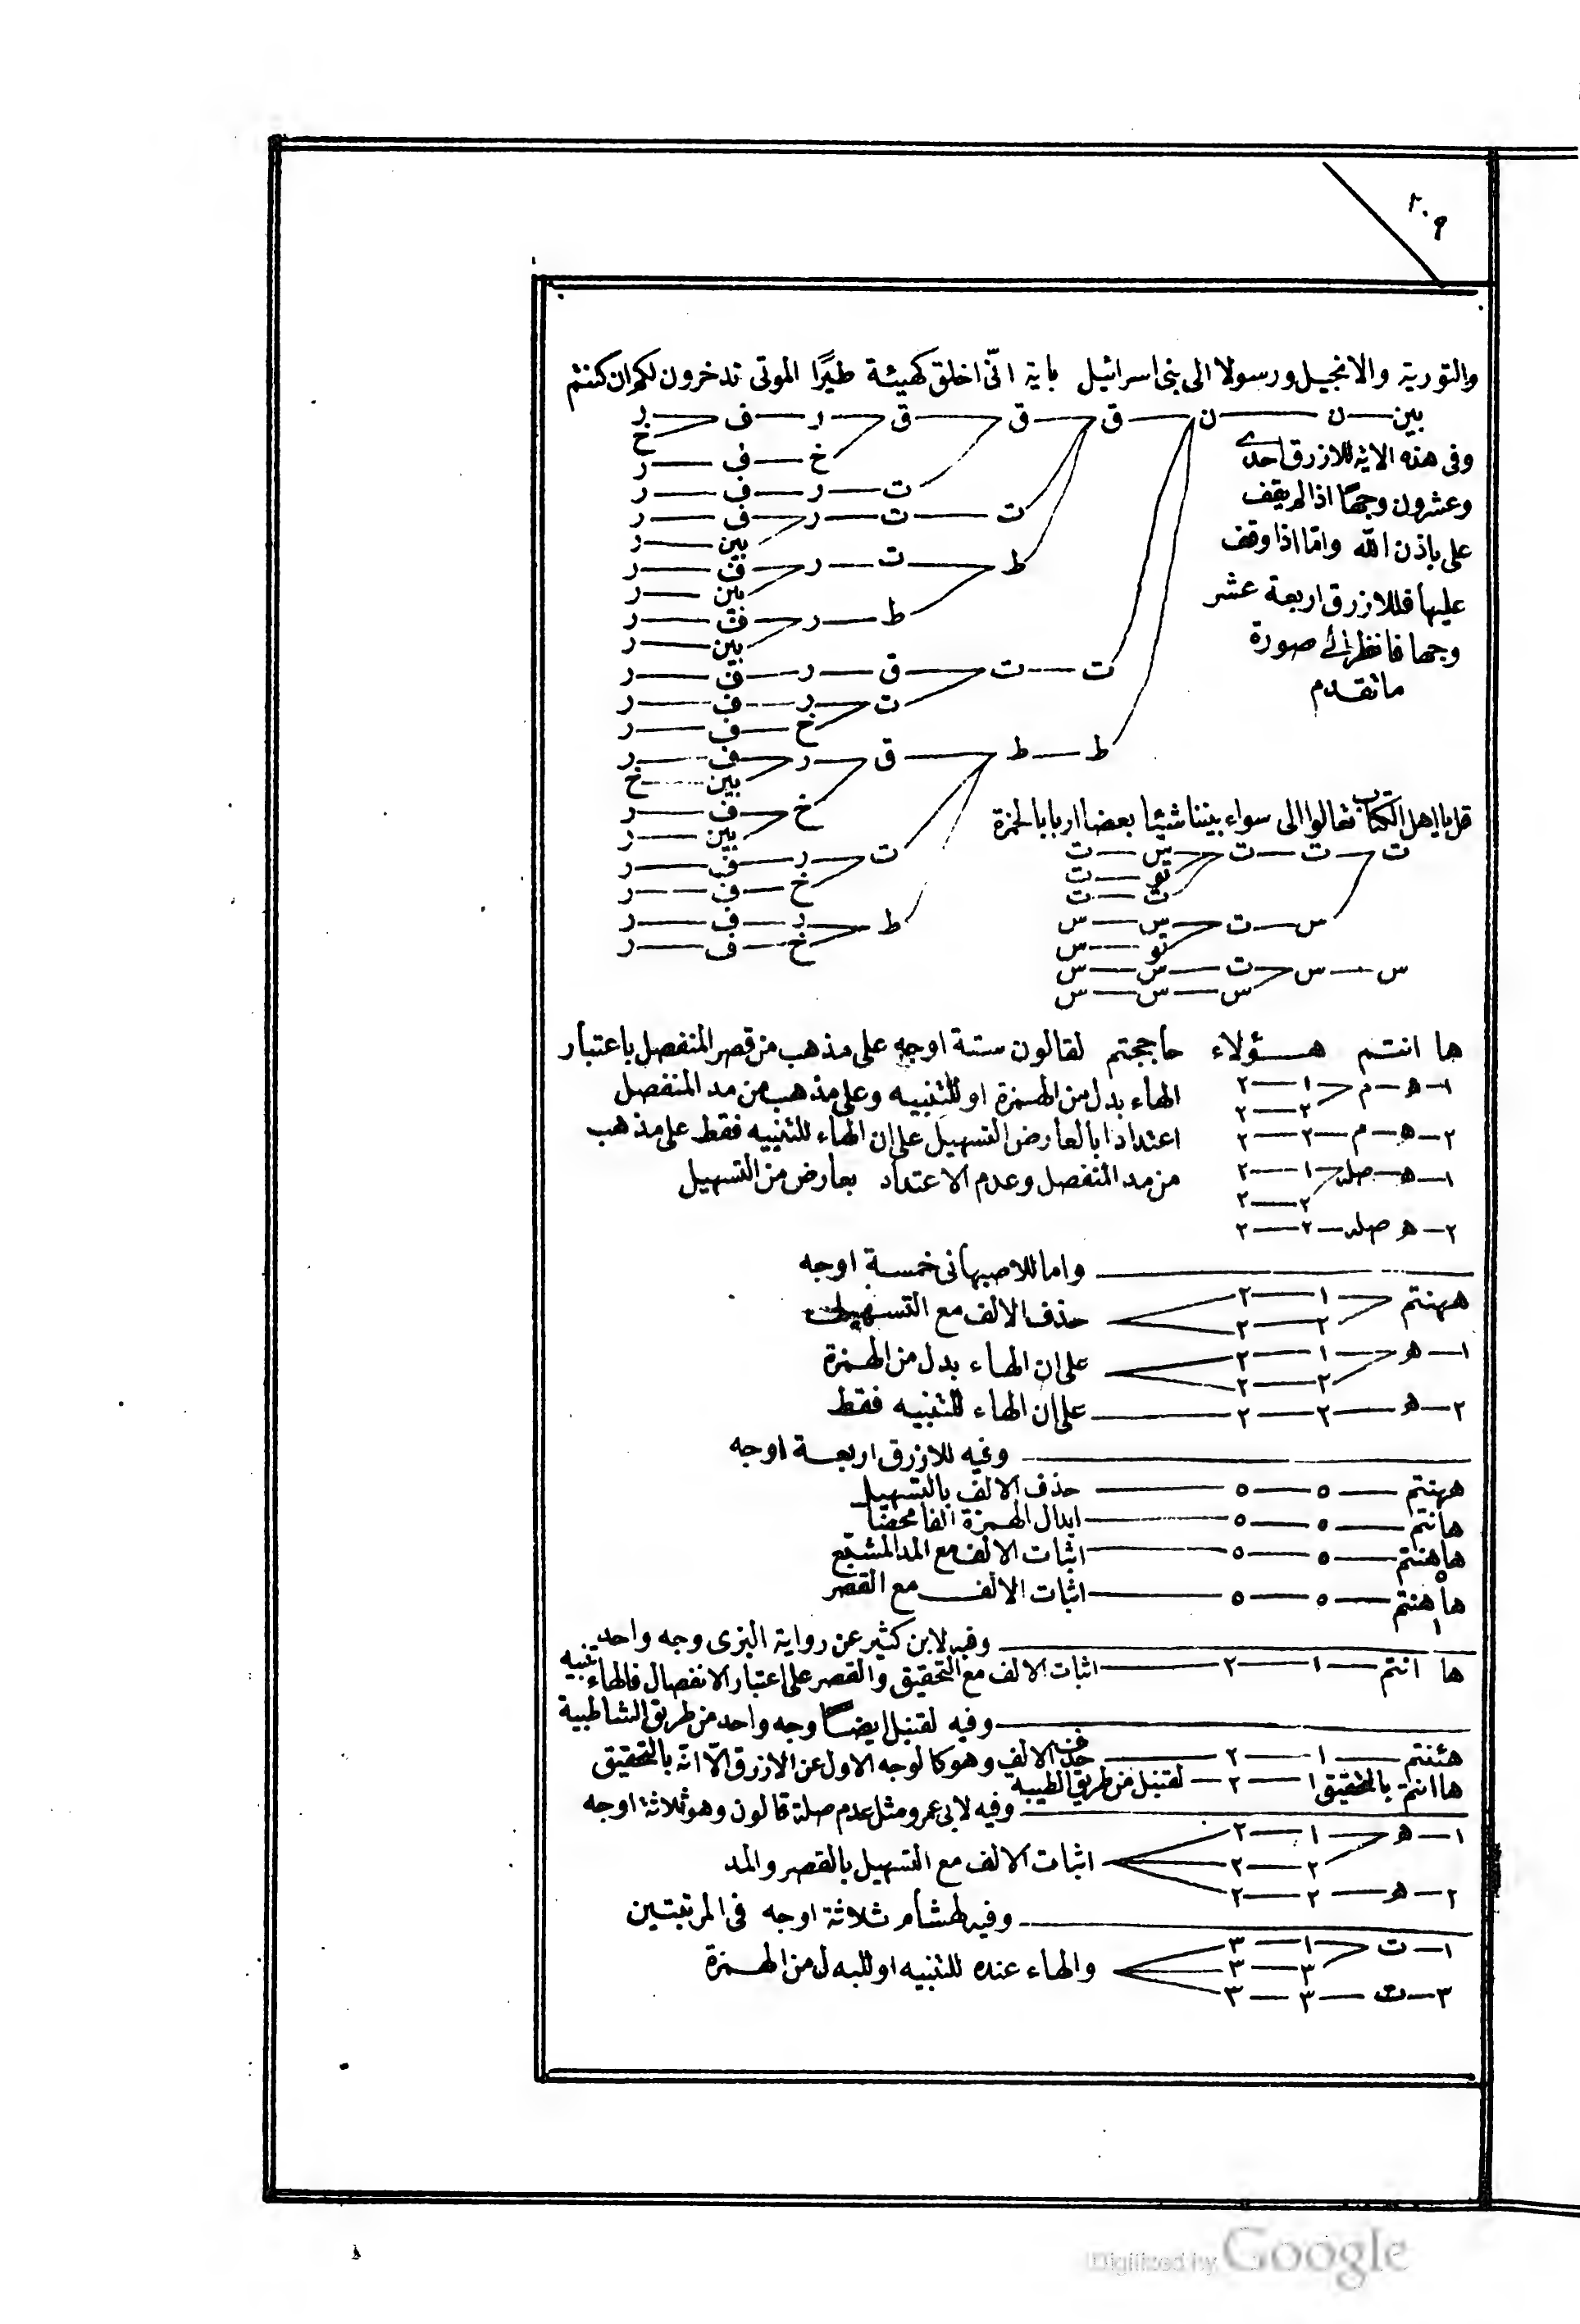 ٢٠٩
والتورية والانجيل ورسولا الى بنى اسرائيل باية انّى اخلق كهيئة طيرًا الموتى تدخرون لكم ان كنتم
بين — ن — ن — ق — ق — ق — ر — ف — ر
خ
خ — ف — ر
ت — ر — ف — ر
ت — ت — ر — ف — ر
بين — ر
ط — ت — ر — ف — ر
بين — ر
ط — ر — ف — ر
بين — ر
ت — ت — ق — ر — ف — ر
ت — ر — ف — ر
خ — ف — ر
ط — ط — ق — ر — ف — ر
بين — خ
خ — ف — ر
بين — ر
ت — ر — ف — ر
خ — ف — ر
ط — ر — ف — ر
خ — ف — ر
وفى هذه الاية للازرق احدى
وعشرون وجها اذا لم يقف
على باذن الله واما اذا وقف
عليها فللازرق اربعة عشر
وجها فانظر الى صورة
ما تقدم
قل يا اهل الكتاب تعالوا الى سواء بيننا شيئا بعضا اربابا لحمزة
ت — ت — ت — س — ت
تو — ت
ت — ت
س — ت — س — س
تو — س
س — س — ت — س — س
س — س — س
ها انتم هؤلاء حاججتم لقالون ستة اوجه على مذهب من قصر المنفصل باعتبار
الهاء بدل من الهمزة او للتنبيه وعلى مذهب من مد المنفصل
اعتدادا بالعارض التسهيل على ان الهاء للتنبيه فقط على مذهب
من مد المنفصل وعدم الاعتداد بعارض من التسهيل
١ — ه — م — ١ — ٢
٢ — ٢
٢ — ه — م — ٢ — ٢
١ — ه — صله — ١ — ٢
٢ — ٢
٢ — ه صله — ٢ — ٢
واما للاصبهانى خمسة اوجه
ههنتم — ١ — ٢
٢ — ٢
حذف الالف مع التسهيل
١ — ه — ١ — ٢
٢ — ٢
على ان الهاء بدل من الهمزة
٢ — ه — ٢ — ٢ — على ان الهاء للتنبيه فقط
وفيه للازرق اربعة اوجه
ههنتم — ٥ — ٥ — حذف الالف بالتسهيل
هانتم — ٥ — ٥ — ابدال الهمزة الفا محضا
هاهنتم — ٥ — ٥ — اثبات الالف مع المد المشبع
٥
هاهنتم — ٥ — ٥ — اثبات الالف مع القصر
١
وفيه لابن كثير عن رواية البزى وجه واحد
ها انتم — ١ — ٢ — اثبات الالف مع التحقيق والقصر على اعتبار الانفصال فالهاء تنبيه
وفيه لقنبل ايضا وجه واحد من طريق الشاطبية
هئنتم — ١ — ٢ — حذف الالف وهو كالوجه الاول عن الازرق الّا انّه بالتحقيق
ها انتم بالتحقيق ١ — ٢ — لقنبل من طريق الطيبة
وفيه لابى عمرو مثل عدم صلة قالون وهو ثلاثة اوجه
١ — ه — ١ — ٢
٢ — ٢
٢ — ه — ٢ — ٢
اثبات الالف مع التسهيل بالقصر والمد
وفيه لهشام ثلاثة اوجه فى المرتبتين
١ — ت — ١ — ٣
٣ — ٣
٣ — ت — ٣ — ٣
والهاء عنده للتنبيه او للبدل من الهمزة
Digitized by Google